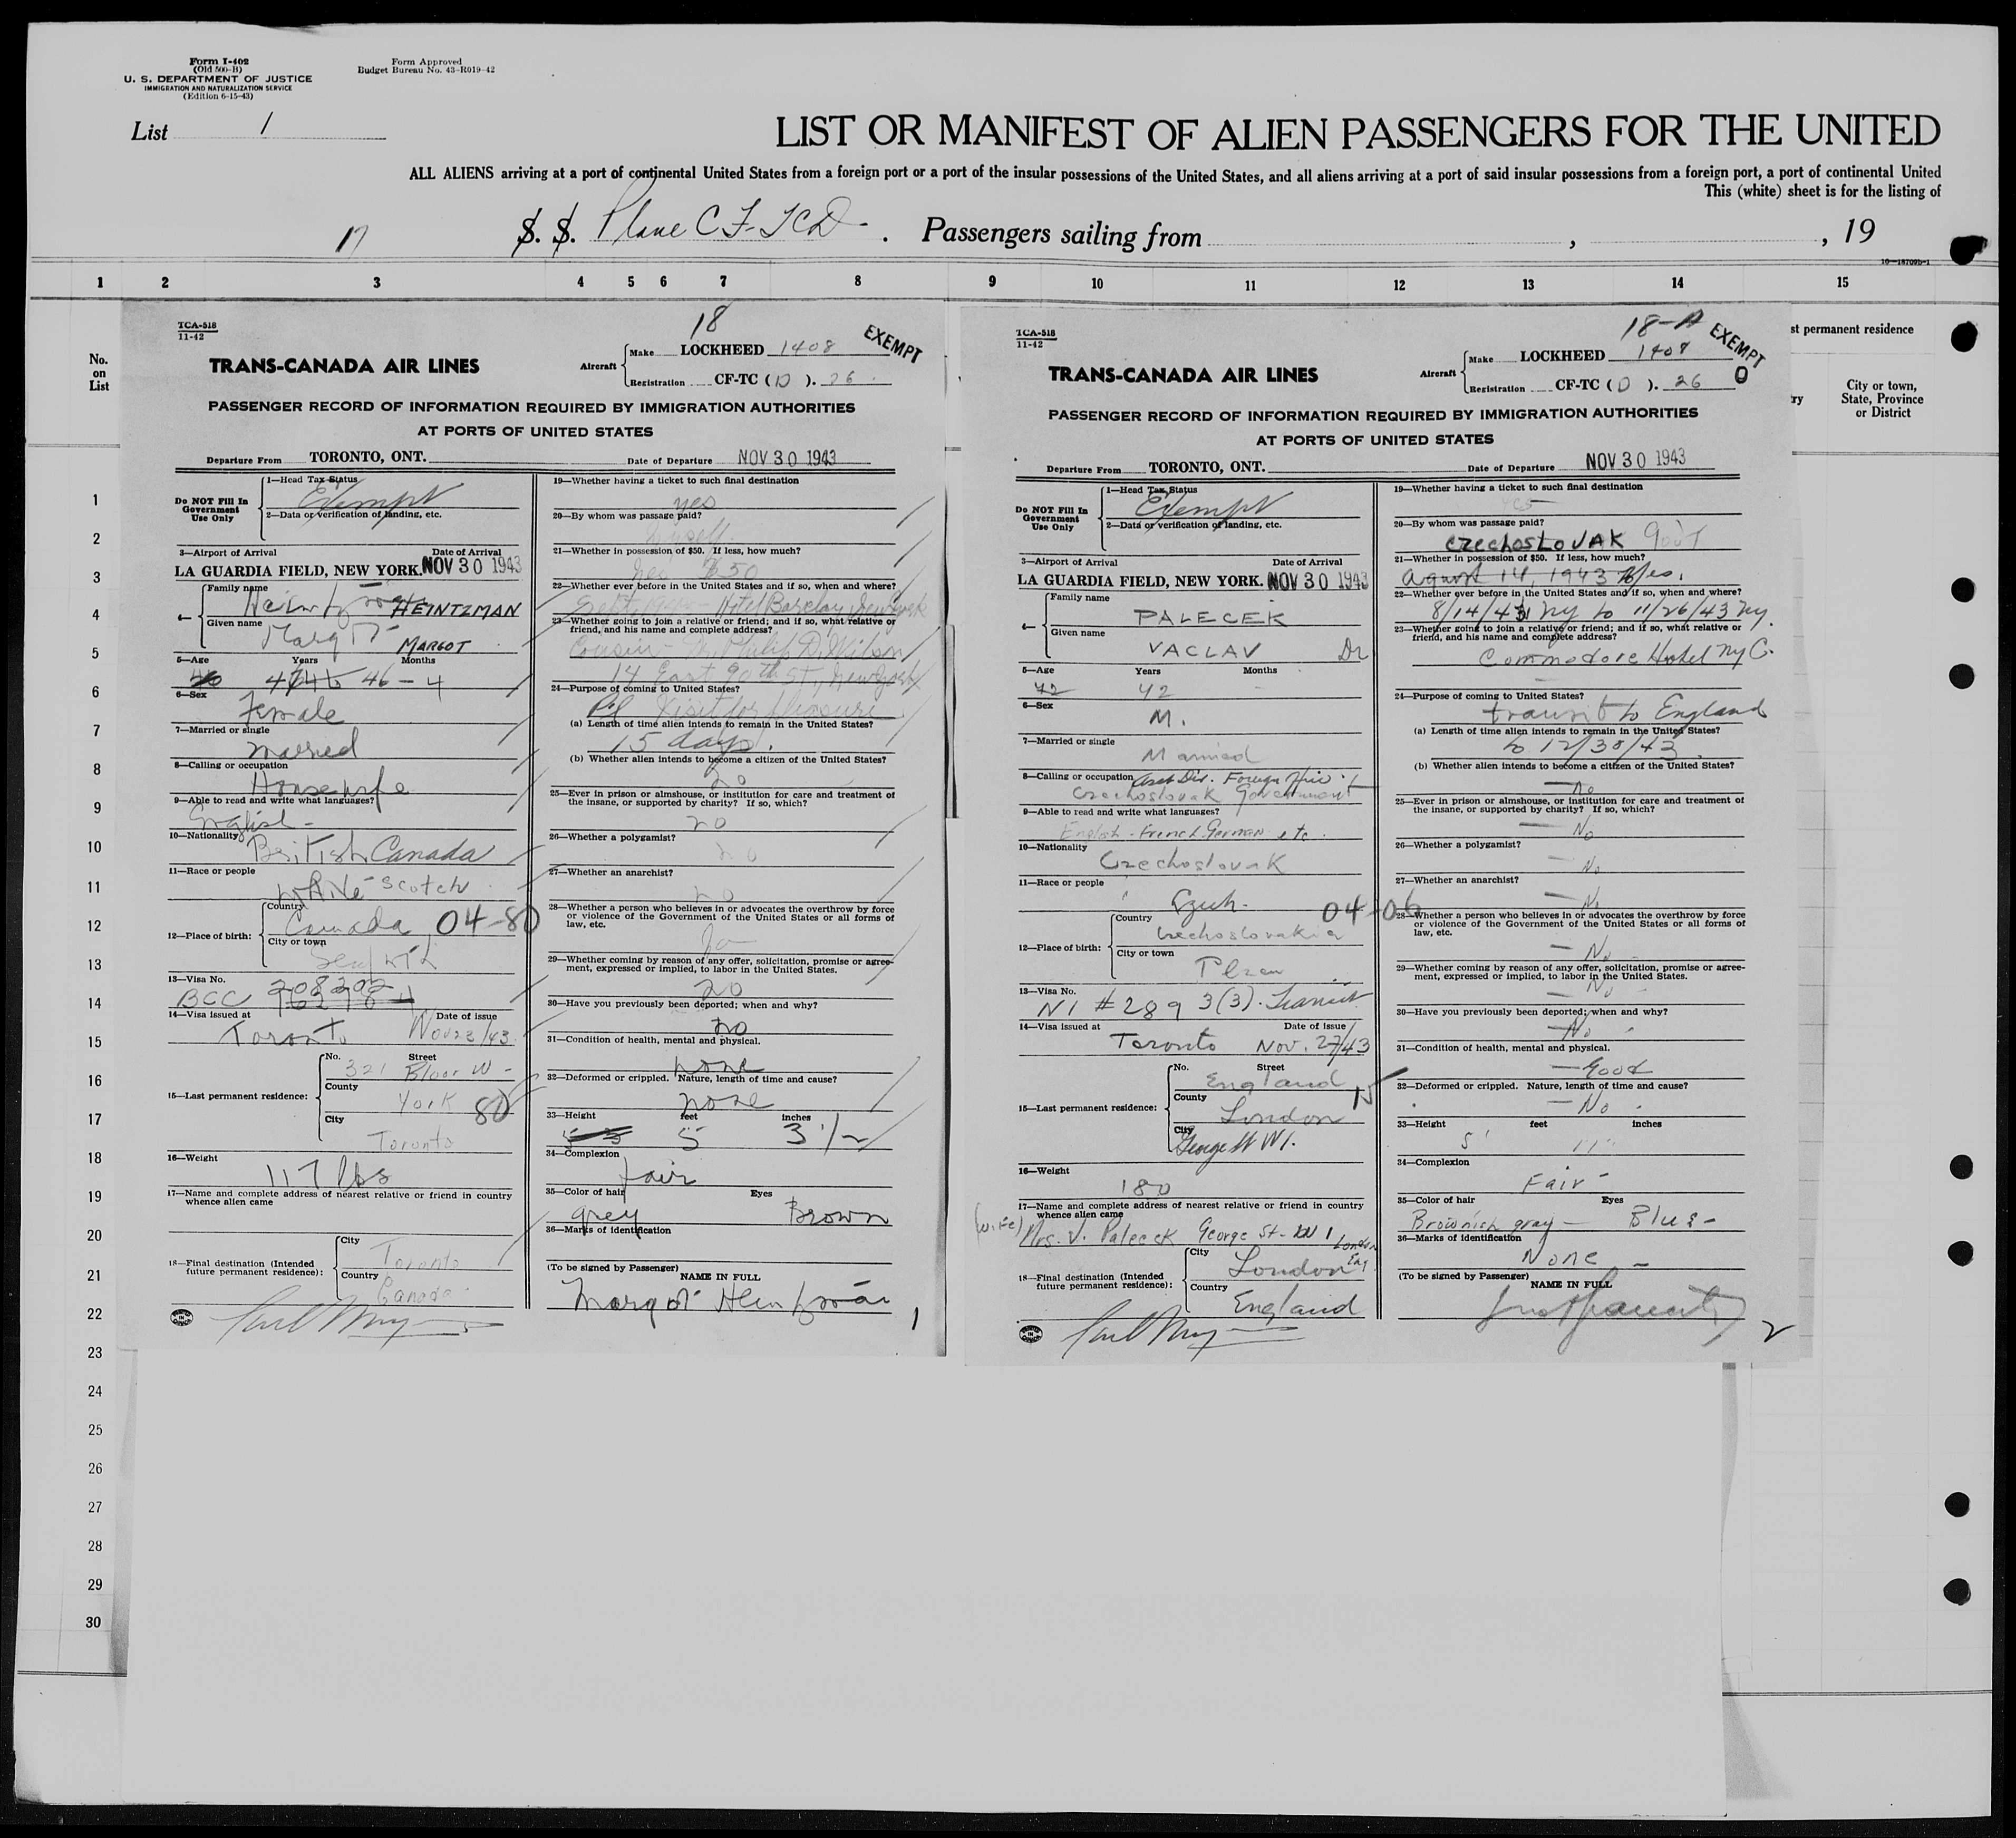 Form I-402
(Old 500-B)
U. S. DEPARTMENT OF JUSTICE
IMMIGRATION AND NATURALIZATION SERVICE
(Edition 6-15-43)
Form Approved
Budget Bureau No. 43-R019-42
List 1
LIST OR MANIFEST OF ALIEN PASSENGERS FOR THE UNITED
ALL ALIENS arriving at a port of continental United States from a foreign port or a port of the insular possessions of the United States, and all aliens arriving at a port of said insular possessions from a foreign port, a port of continental United
This (white) sheet is for the listing of
17 S. S. Plane CF-TCD. Passengers sailing from , , 19
16—18709b-1
1 2 3 4 5 6 7 8 9 10 11 12 13 14 15
No.
on
List
st permanent residence
ry
City or town,
State, Province
or District
1
2
3
4
5
6
7
8
9
10
11
12
13
14
15
16
17
18
19
20
21
22
23
24
25
26
27
28
29
30
TCA-518
11-42
18
EXEMPT
TRANS-CANADA AIR LINES
Aircraft
Make LOCKHEED 1408
Registration CF-TC (D). 26
PASSENGER RECORD OF INFORMATION REQUIRED BY IMMIGRATION AUTHORITIES
AT PORTS OF UNITED STATES
Departure From TORONTO, ONT.
Date of Departure NOV 30 1943
Do NOT Fill In
Government
Use Only
1—Head Tax Status
Exempt
2—Data or verification of landing, etc.
3—Airport of Arrival Date of Arrival
LA GUARDIA FIELD, NEW YORK. NOV 30 1943
4—
Family name
HEINTZMAN
Given name
Margot MARGOT
5—Age Years Months
46 46 - 4
6—Sex
Female
7—Married or single
Married
8—Calling or occupation
Housewife
9—Able to read and write what languages?
English -
10—Nationality
British Canada
11—Race or people
White Scotch
12—Place of birth:
Country
Canada 04-80
City or town
13—Visa No.
208202
BCC
14—Visa issued at Date of issue
Toronto Nov 23/43
15—Last permanent residence:
No. Street
321 Bloor W -
County
York 80
City
Toronto
16—Weight
117 lbs
17—Name and complete address of nearest relative or friend in country
whence alien came
18—Final destination (Intended
future permanent residence):
City
Toronto
Country
Canada
19—Whether having a ticket to such final destination
yes
20—By whom was passage paid?
myself
21—Whether in possession of $50. If less, how much?
yes $50
22—Whether ever before in the United States and if so, when and where?
Hotel Barclay New York
23—Whether going to join a relative or friend; and if so, what relative or
friend, and his name and complete address?
Cousin - Philip D. Wilson
14 East 90th St., New York
24—Purpose of coming to United States?
Visit for pleasure
(a) Length of time alien intends to remain in the United States?
15 days.
(b) Whether alien intends to become a citizen of the United States?
no
25—Ever in prison or almshouse, or institution for care and treatment of
the insane, or supported by charity? If so, which?
no
26—Whether a polygamist?
no
27—Whether an anarchist?
no
28—Whether a person who believes in or advocates the overthrow by force
or violence of the Government of the United States or all forms of
law, etc.
no
29—Whether coming by reason of any offer, solicitation, promise or agree-
ment, expressed or implied, to labor in the United States.
no
30—Have you previously been deported; when and why?
no
31—Condition of health, mental and physical.
none
32—Deformed or crippled. Nature, length of time and cause?
none
33—Height feet inches
5 3 1/2
34—Complexion
fair
35—Color of hair Eyes
grey Brown
36—Marks of identification
(To be signed by Passenger)
NAME IN FULL
Margot Heintzman 1
TCA-518
11-42
18-A
EXEMPT
0
TRANS-CANADA AIR LINES
Aircraft
Make LOCKHEED 1408
Registration CF-TC (D). 26
PASSENGER RECORD OF INFORMATION REQUIRED BY IMMIGRATION AUTHORITIES
AT PORTS OF UNITED STATES
Departure From TORONTO, ONT.
Date of Departure NOV 30 1943
Do NOT Fill In
Government
Use Only
1—Head Tax Status
Exempt
2—Data or verification of landing, etc.
3—Airport of Arrival Date of Arrival
LA GUARDIA FIELD, NEW YORK. NOV 30 1943
4—
Family name
PALECEK
Given name
VACLAV Dr
5—Age Years Months
42 42 -
6—Sex
M.
7—Married or single
Married
8—Calling or occupation Asst Dir. Foreign
Czechoslovak Government
9—Able to read and write what languages?
English - French German etc.
10—Nationality
Czechoslovak
11—Race or people
Czech. 04-06
12—Place of birth:
Country
Czechoslovakia
City or town
Plzen
13—Visa No.
NI #289 3(3). Transit
14—Visa issued at Date of issue
Toronto Nov. 27/43
15—Last permanent residence:
No. Street
England 15
County
London
City
George St W1.
16—Weight
180
17—Name and complete address of nearest relative or friend in country
whence alien came
(wife) Mrs. V. Palecek George St - W1 London Eng
18—Final destination (Intended
future permanent residence):
City
London
Country
England
19—Whether having a ticket to such final destination
yes
20—By whom was passage paid?
CZECHOSLOVAK Gov'T
21—Whether in possession of $50. If less, how much?
August 14, 1943 Yes.
22—Whether ever before in the United States and if so, when and where?
8/14/43 NY to 11/26/43 NY.
23—Whether going to join a relative or friend; and if so, what relative or
friend, and his name and complete address?
Commodore Hotel NyC.
24—Purpose of coming to United States?
transit to England
(a) Length of time alien intends to remain in the United States?
to 12/30/43.
(b) Whether alien intends to become a citizen of the United States?
— No
25—Ever in prison or almshouse, or institution for care and treatment of
the insane, or supported by charity? If so, which?
— No
26—Whether a polygamist?
— No
27—Whether an anarchist?
— No
28—Whether a person who believes in or advocates the overthrow by force
or violence of the Government of the United States or all forms of
law, etc.
— No
29—Whether coming by reason of any offer, solicitation, promise or agree-
ment, expressed or implied, to labor in the United States.
— No
30—Have you previously been deported; when and why?
— No
31—Condition of health, mental and physical.
— Good
32—Deformed or crippled. Nature, length of time and cause?
— No
33—Height feet inches
5' 11"
34—Complexion
Fair
35—Color of hair Eyes
Brownish gray — Blue -
36—Marks of identification
None —
(To be signed by Passenger)
NAME IN FULL
2